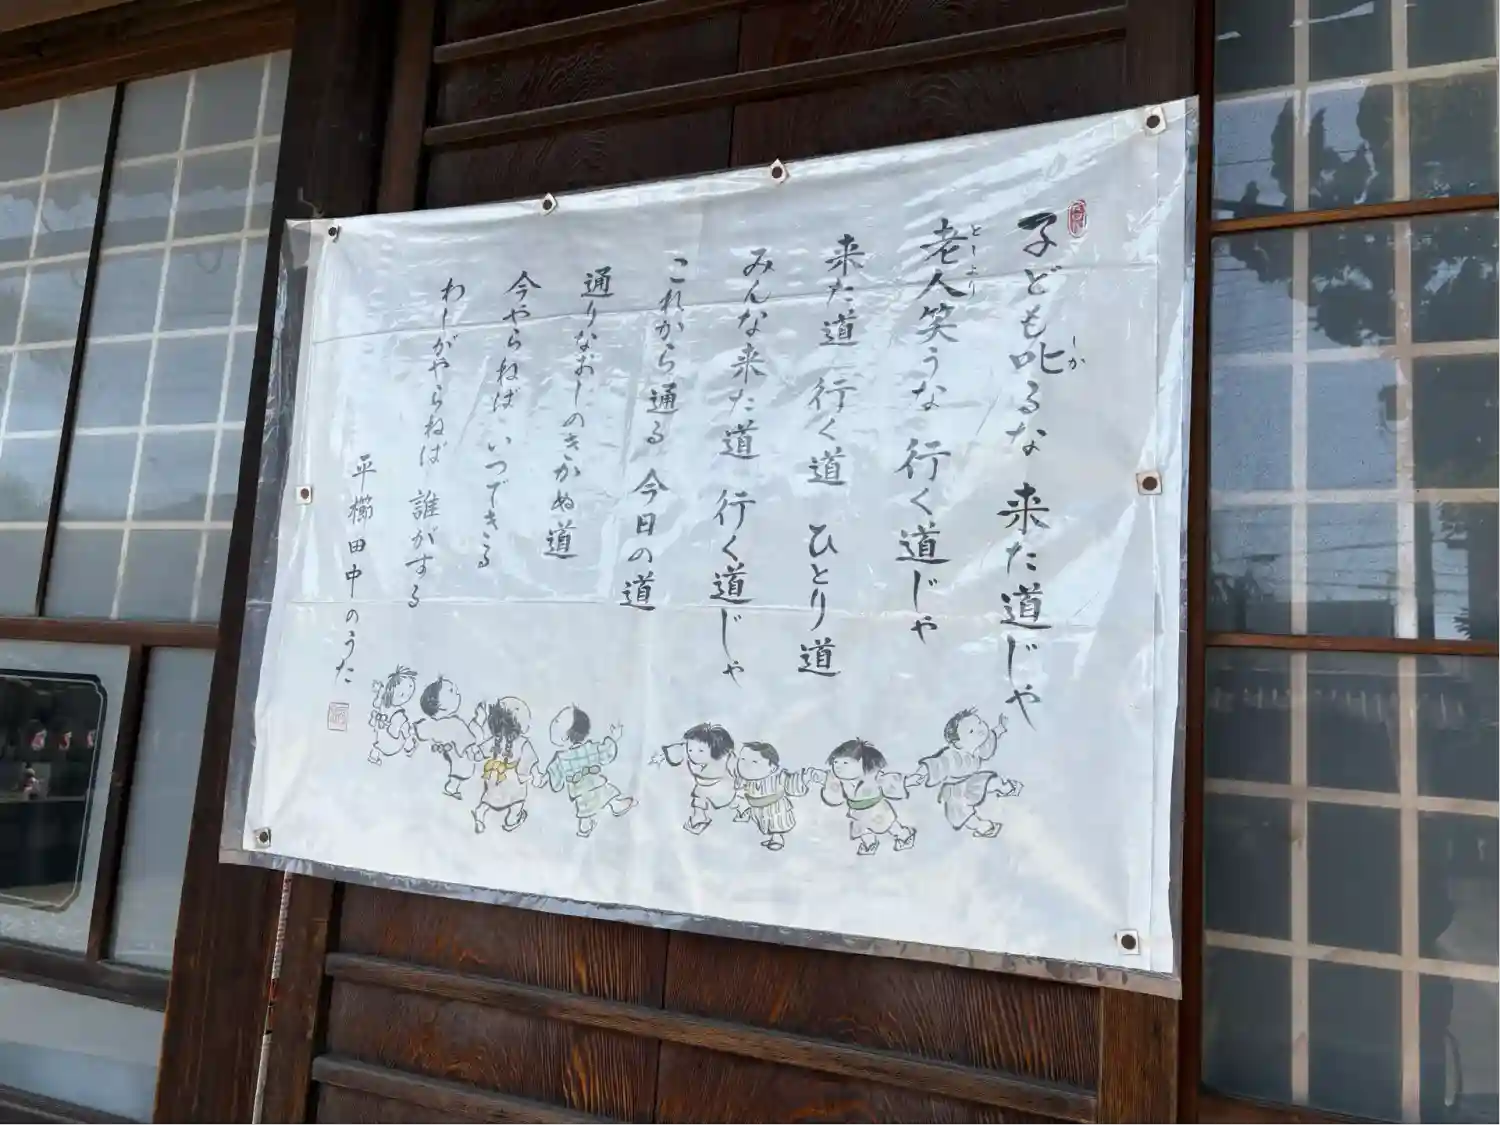 子ども叱るな 来た道じゃ
老人笑うな 行く道じゃ
来た道 行く道 ひとり道
みんな来た道 行く道じゃ
これから通る 今日の道
通りなおしのきかぬ道
今やらねば いつできる
わしがやらねば 誰がする
平櫛田中のうた